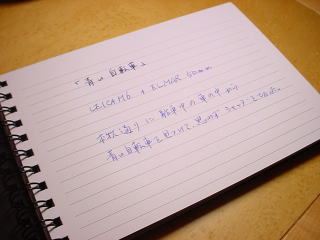 「青い自転車」
LEICA M6 + ELMAR 50mm
本牧通りに駐車中の車の中から
青い自転車を見つけて、思わずシャッターを切った。